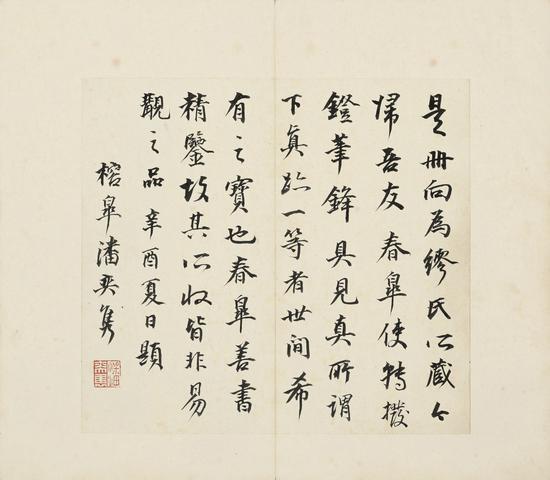 是冊向為繆氏所藏今
歸吾友春皋使轉撥
鐙筆鋒具見真所謂
下真跡一等者世間希
有之寶也春皋善書
精鑒故其所收皆非易
覯之品辛酉夏日題
榕皋潘奕雋